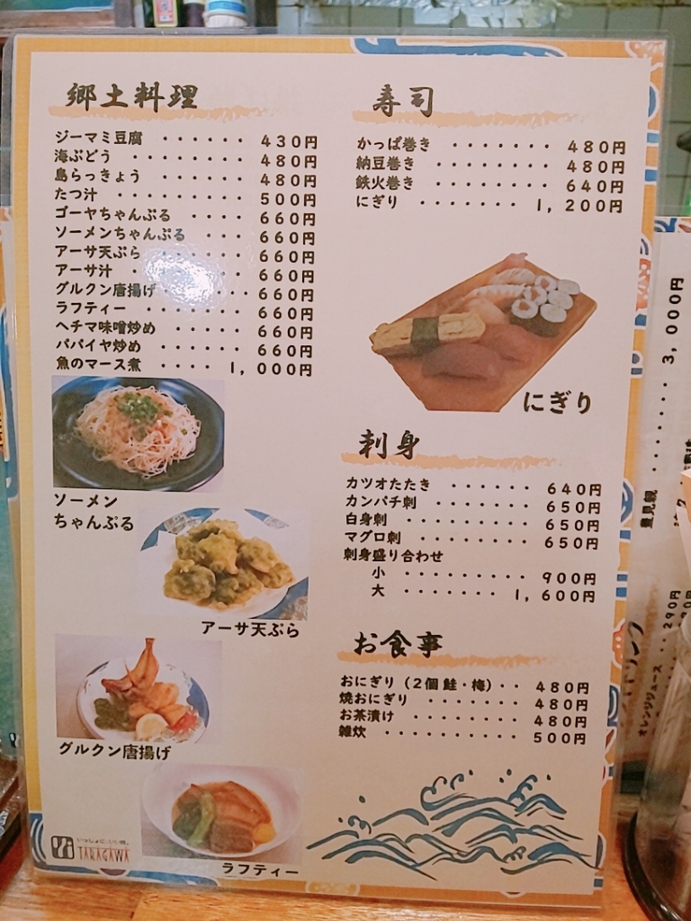 郷土料理
ジーマミ豆腐 ・・・・・・ 430円
海ぶどう ・・・・・・・・ 480円
島らっきょう ・・・・・・ 480円
たつ汁 ・・・・・・・・・ 500円
ゴーヤちゃんぷる ・・・・ 660円
ソーメンちゃんぷる ・・・ 660円
アーサ天ぷら ・・・・・・ 660円
アーサ汁 ・・・・・・・・ 660円
グルクン唐揚げ ・・・・・ 660円
ラフティー ・・・・・・・ 660円
ヘチマ味噌炒め ・・・・・ 660円
パパイヤ炒め ・・・・・・ 660円
魚のマース煮 ・・・・ 1,000円
ソーメン
ちゃんぷる
アーサ天ぷら
グルクン唐揚げ
ラフティー
いっしょに、いい明日。
TARAGAWA
寿司
かっぱ巻き ・・・・・・・ 480円
納豆巻き ・・・・・・・・ 480円
鉄火巻き ・・・・・・・・ 640円
にぎり ・・・・・・・ 1,200円
にぎり
刺身
カツオたたき ・・・・・・ 640円
カンパチ刺 ・・・・・・・ 650円
白身刺 ・・・・・・・・・ 650円
マグロ刺 ・・・・・・・・ 650円
刺身盛り合わせ
小 ・・・・・・・・・ 900円
大 ・・・・・・・・ 1,600円
お食事
おにぎり(2個 鮭・梅)・・ 480円
焼おにぎり ・・・・・・・ 480円
お茶漬け ・・・・・・・・ 480円
雑炊 ・・・・・・・・・・ 500円
豊見親 ・・・・・・・・ 3,000円
オレンジジュース ・・ 290円